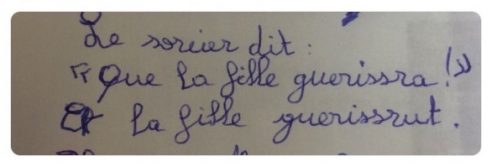 Le sorcier dit :
"Que la fille guerissra !"
Et la fille guerissrut.